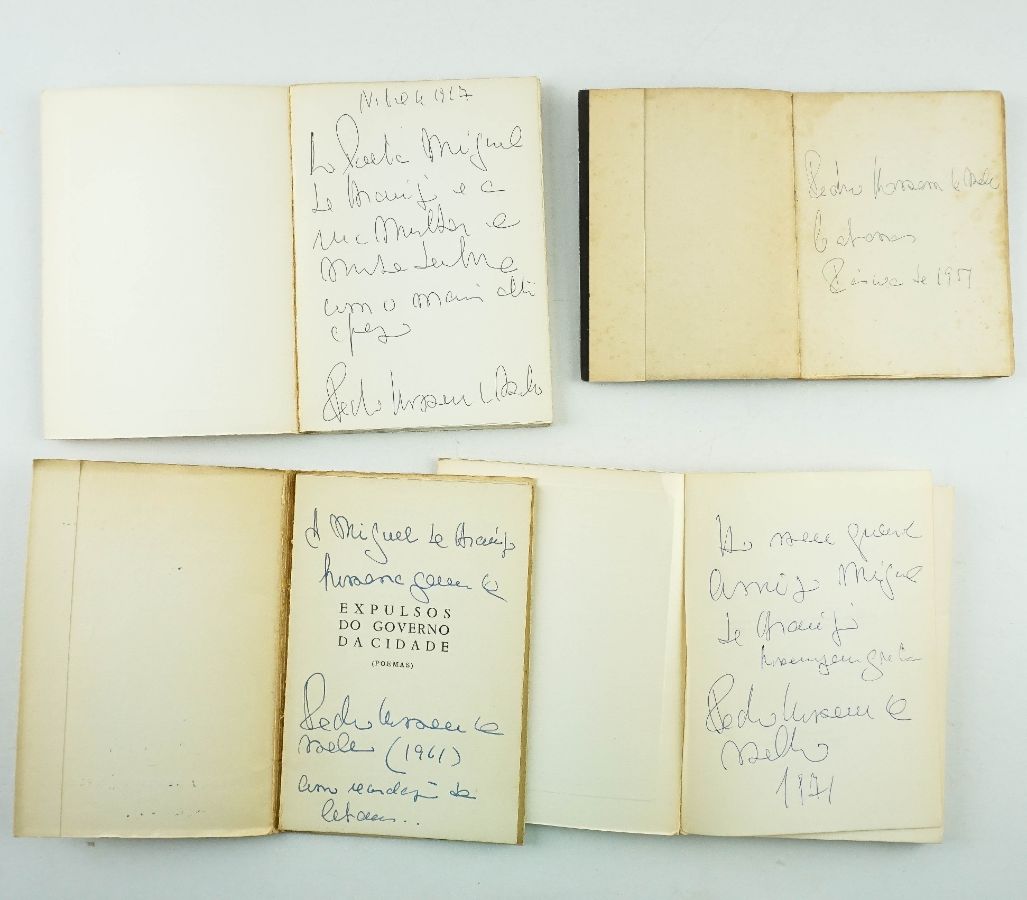 1967
Ao Poeta Miguel
de Araújo e a
sua Mulher e
com o mais alto
apreço
Pedro Homem de Mello
Pedro Homem de Mello
Cabanas
Páscoa de 1951
A Miguel de Araújo
homenagem de
EXPULSOS
DO GOVERNO
DA CIDADE
(POEMAS)
Pedro Homem de
Mello (1961)
com saudações de
Cabanas..
Ao seu grande
amigo Miguel
de Araújo
homenagem grata
Pedro Homem de
Mello
1971